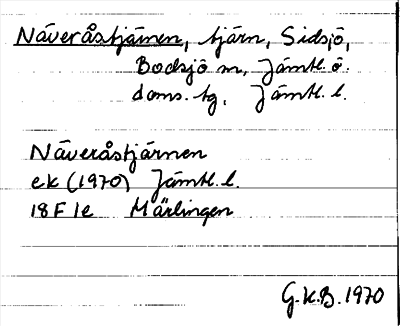 Näveråstjärnen, tjärn, Sidsjö,
Bodsjö sn, Jämtl. ö.
doms. tg, Jämtl. l.
Näveråstjärnen
ek (1970) Jämtl. l.
18 F 1e Märlingen
G.K.B. 1970